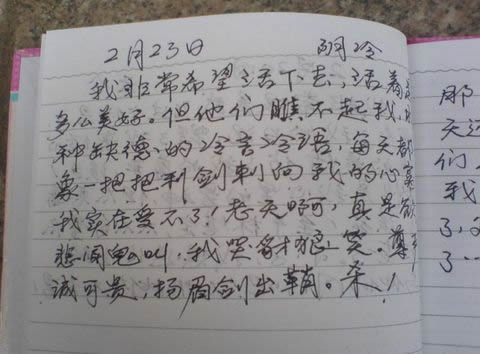 2月23日 阴冷
我非常希望活下去,活着
多么美好。但他们瞧不起我,
种缺德的冷言冷语,每天都
像一把把利剑刺向我的心窝
我实在受不了!老天啊,真是欲
悲闻鬼叫,我哭豺狼笑。尊
诚可贵,扬眉剑出鞘。杀!
那
天
们
我
了,
了…